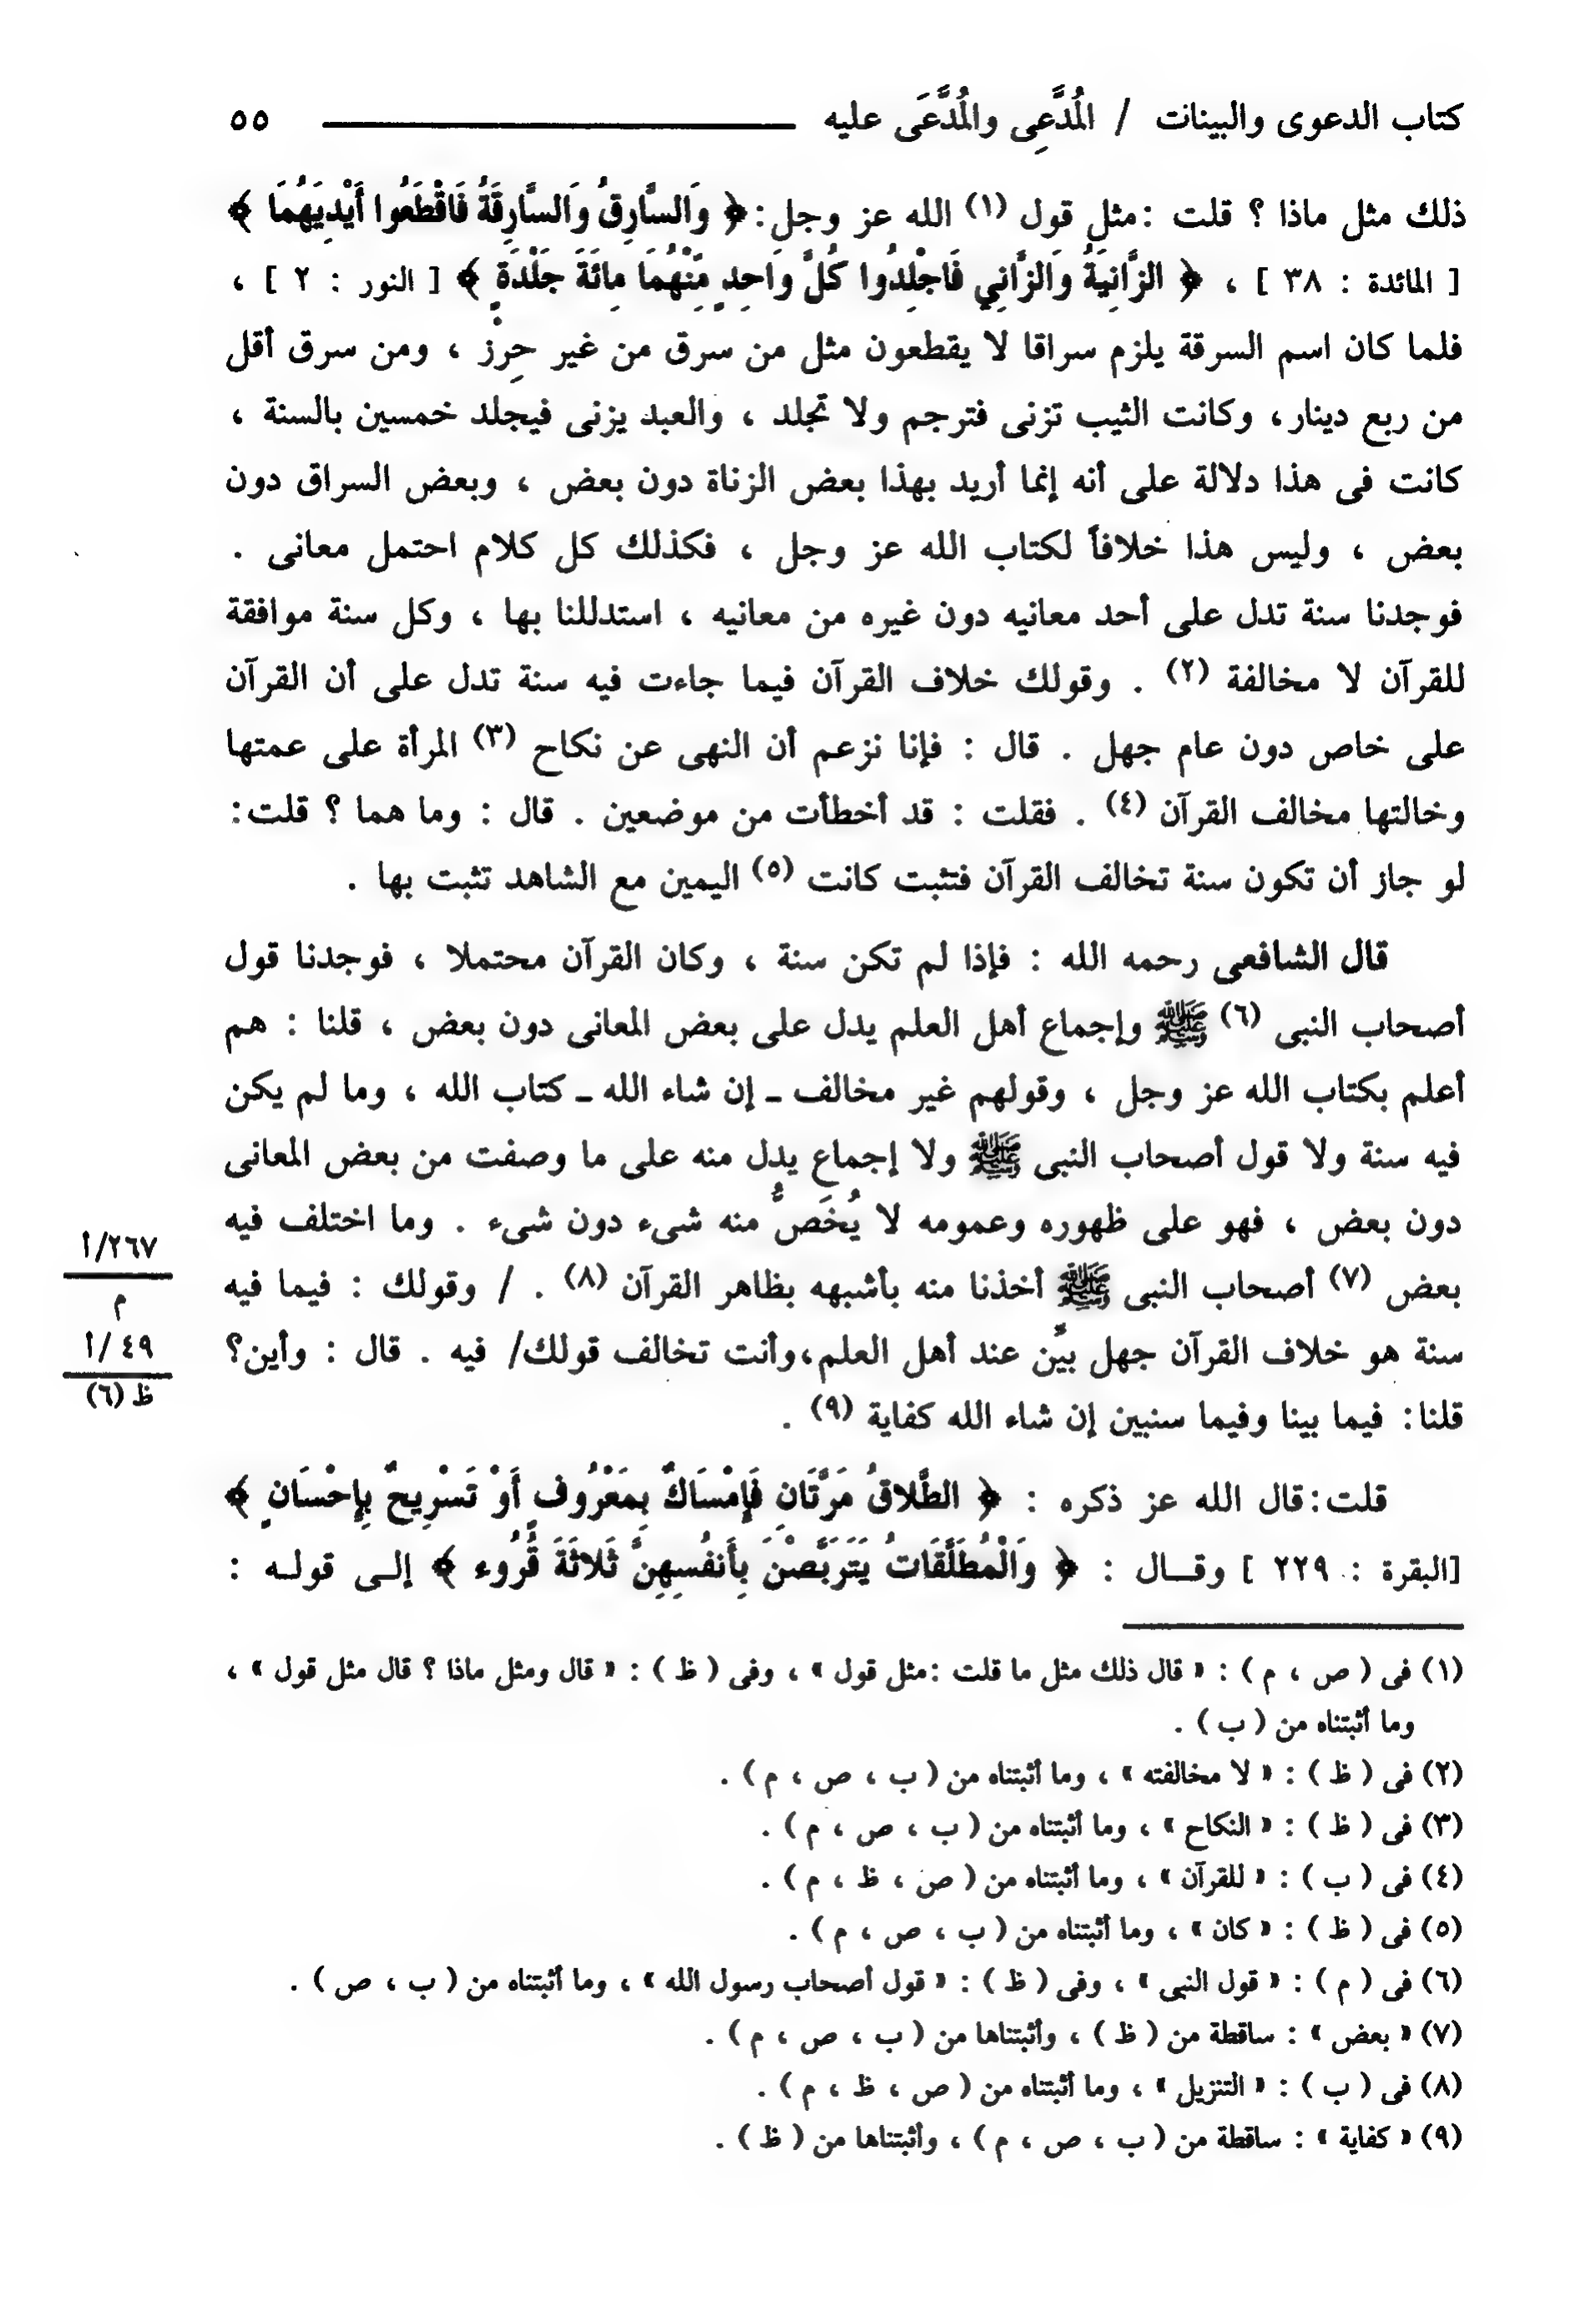 كتاب الدعوى والبينات / المُدَّعِى والمُدَّعَى عليه ٥٥
ذلك مثل ماذا ؟ قلت :مثل قول (١) الله عز وجل:﴿ وَالسَّارِقُ وَالسَّارِقَةُ فَاقْطَعُوا أَيْدِيَهُمَا ﴾
[ المائدة : ٣٨ ] ، ﴿ الزَّانِيَةُ وَالزَّانِي فَاجْلِدُوا كُلَّ وَاحِدٍ مِّنْهُمَا مِائَةَ جَلْدَةٍ ﴾ [ النور : ٢ ] ،
فلما كان اسم السرقة يلزم سراقا لا يقطعون مثل من سرق من غير حِرز ، ومن سرق أقل
من ربع دينار، وكانت الثيب تزنى فترجم ولا تجلد ، والعبد يزنى فيجلد خمسين بالسنة ،
كانت فى هذا دلالة على أنه إنما أريد بهذا بعض الزناة دون بعض ، وبعض السراق دون
بعض ، وليس هذا خلافاً لكتاب الله عز وجل ، فكذلك كل كلام احتمل معانى .
فوجدنا سنة تدل على أحد معانيه دون غيره من معانيه ، استدللنا بها ، وكل سنة موافقة
للقرآن لا مخالفة (٢) . وقولك خلاف القرآن فيما جاءت فيه سنة تدل على أن القرآن
على خاص دون عام جهل . قال : فإنا نزعم أن النهى عن نكاح (٣) المرأة على عمتها
وخالتها مخالف القرآن (٤) . فقلت : قد أخطأت من موضعين . قال : وما هما ؟ قلت:
لو جاز أن تكون سنة تخالف القرآن فتثبت كانت (٥) اليمين مع الشاهد تثبت بها .
قال الشافعى رحمه الله : فإذا لم تكن سنة ، وكان القرآن محتملا ، فوجدنا قول
أصحاب النبى (٦) ﷺ وإجماع أهل العلم يدل على بعض المعانى دون بعض ، قلنا : هم
أعلم بكتاب الله عز وجل ، وقولهم غير مخالف ـ إن شاء الله ـ كتاب الله ، وما لم يكن
فيه سنة ولا قول أصحاب النبى ﷺ ولا إجماع يدل منه على ما وصفت من بعض المعانى
دون بعض ، فهو على ظهوره وعمومه لا يُخَصُّ منه شىء دون شىء . وما اختلف فيه
بعض (٧) أصحاب النبى ﷺ أخذنا منه بأشبهه بظاهر القرآن (٨) . / وقولك : فيما فيه
سنة هو خلاف القرآن جهل بيِّن عند أهل العلم،وأنت تخالف قولك/ فيه . قال : وأين؟
قلنا: فيما بينا وفيما سنبين إن شاء الله كفاية (٩) .
٢٦٧/أ
م
٤٩ /أ
ظ (٦)
قلت:قال الله عز ذكره : ﴿ الطَّلاقُ مَرَّتَانِ فَإِمْسَاكٌ بِمَعْرُوفٍ أَوْ تَسْرِيحٌ بِإِحْسَانٍ ﴾
[البقرة : ٢٢٩ ] وقـــال : ﴿ وَالْمُطَلَّقَاتُ يَتَرَبَّصْنَ بِأَنفُسِهِنَّ ثَلاثَةَ قُرُوء ﴾ إلـى قولـه :
(١) فى ( ص ، م ) : « قال ذلك مثل ما قلت :مثل قول » ، وفى ( ظ ) : « قال ومثل ماذا ؟ قال مثل قول » ،
وما أثبتناه من ( ب ) .
(٢) فى ( ظ ) : « لا مخالفته » ، وما أثبتناه من ( ب ، ص ، م ) .
(٣) فى ( ظ ) : « النكاح » ، وما أثبتناه من ( ب ، ص ، م ) .
(٤) فى ( ب ) : « للقرآن » ، وما أثبتناه من ( ص ، ظ ، م ) .
(٥) فى ( ظ ) : « كان » ، وما أثبتناه من ( ب ، ص ، م ) .
(٦) فى ( م ) : « قول النبى » ، وفى ( ظ ) : « قول أصحاب رسول الله » ، وما أثبتناه من ( ب ، ص ) .
(٧) « بعض » : ساقطة من ( ظ ) ، وأثبتناها من ( ب ، ص ، م ) .
(٨) فى ( ب ) : « التنزيل » ، وما أثبتناه من ( ص ، ظ ، م ) .
(٩) « كفاية » : ساقطة من ( ب ، ص ، م ) ، وأثبتناها من ( ظ ) .